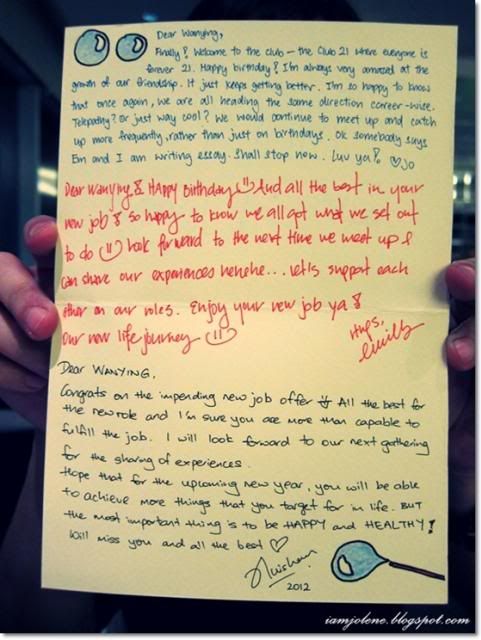 Dear Wanying,
Finally! Welcome to the club - the Club 21 where everyone is
forever 21. Happy birthday! I'm always very amazed at the
growth of our friendship. It just keeps getting better. I'm so happy to know
that once again, we are all heading the same direction career-wise.
Telepathy? Or just way cool? We would continue to meet up and catch
up more frequently, rather than just on birthdays. Ok somebody says
Em and I am writing essay. Shall stop now. Luv ya! ♡ jo
Dear Wanying! Happy Birthday And all the best in your
new job! So happy to know we all got what we set out
to do look forward to the next time we meet up &
can share our experiences hehehe... let's support each
other on our roles. Enjoy your new job ya!
Our new life journey
Hugs,
Emily
Dear WANYING,
Congrats on the impending new job offer All the best for
the new role and I'm sure you are more than capable to
fulfill the job. I will look forward to our next gathering
for the sharing of experiences.
Hope that for the upcoming new year, you will be able
to achieve more things that you target for in life. BUT
the most important thing is to be HAPPY and HEALTHY!
Will miss you and all the best ♡
2012
iamjolene.blogspot.com